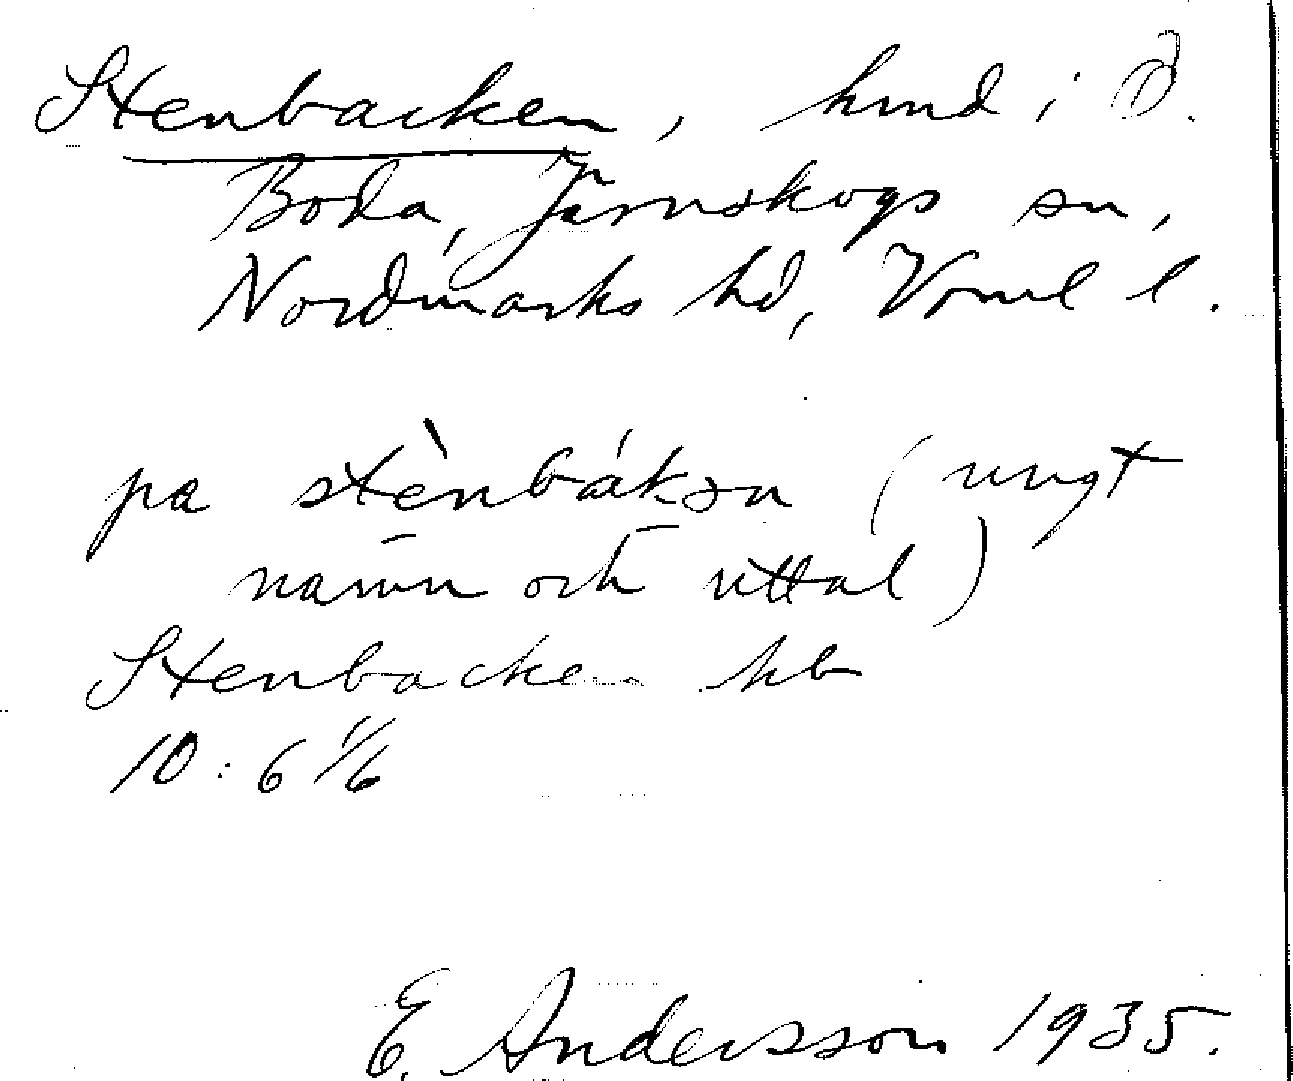 Stenbacken, hmd i Ö.
Boda, Järnskogs sn,
Nordmarks hd, Vrml l.
pa stènbákən (ungt
namn och uttal)
Stenbacken hb
10:6 1/6
E. Andersson 1935.